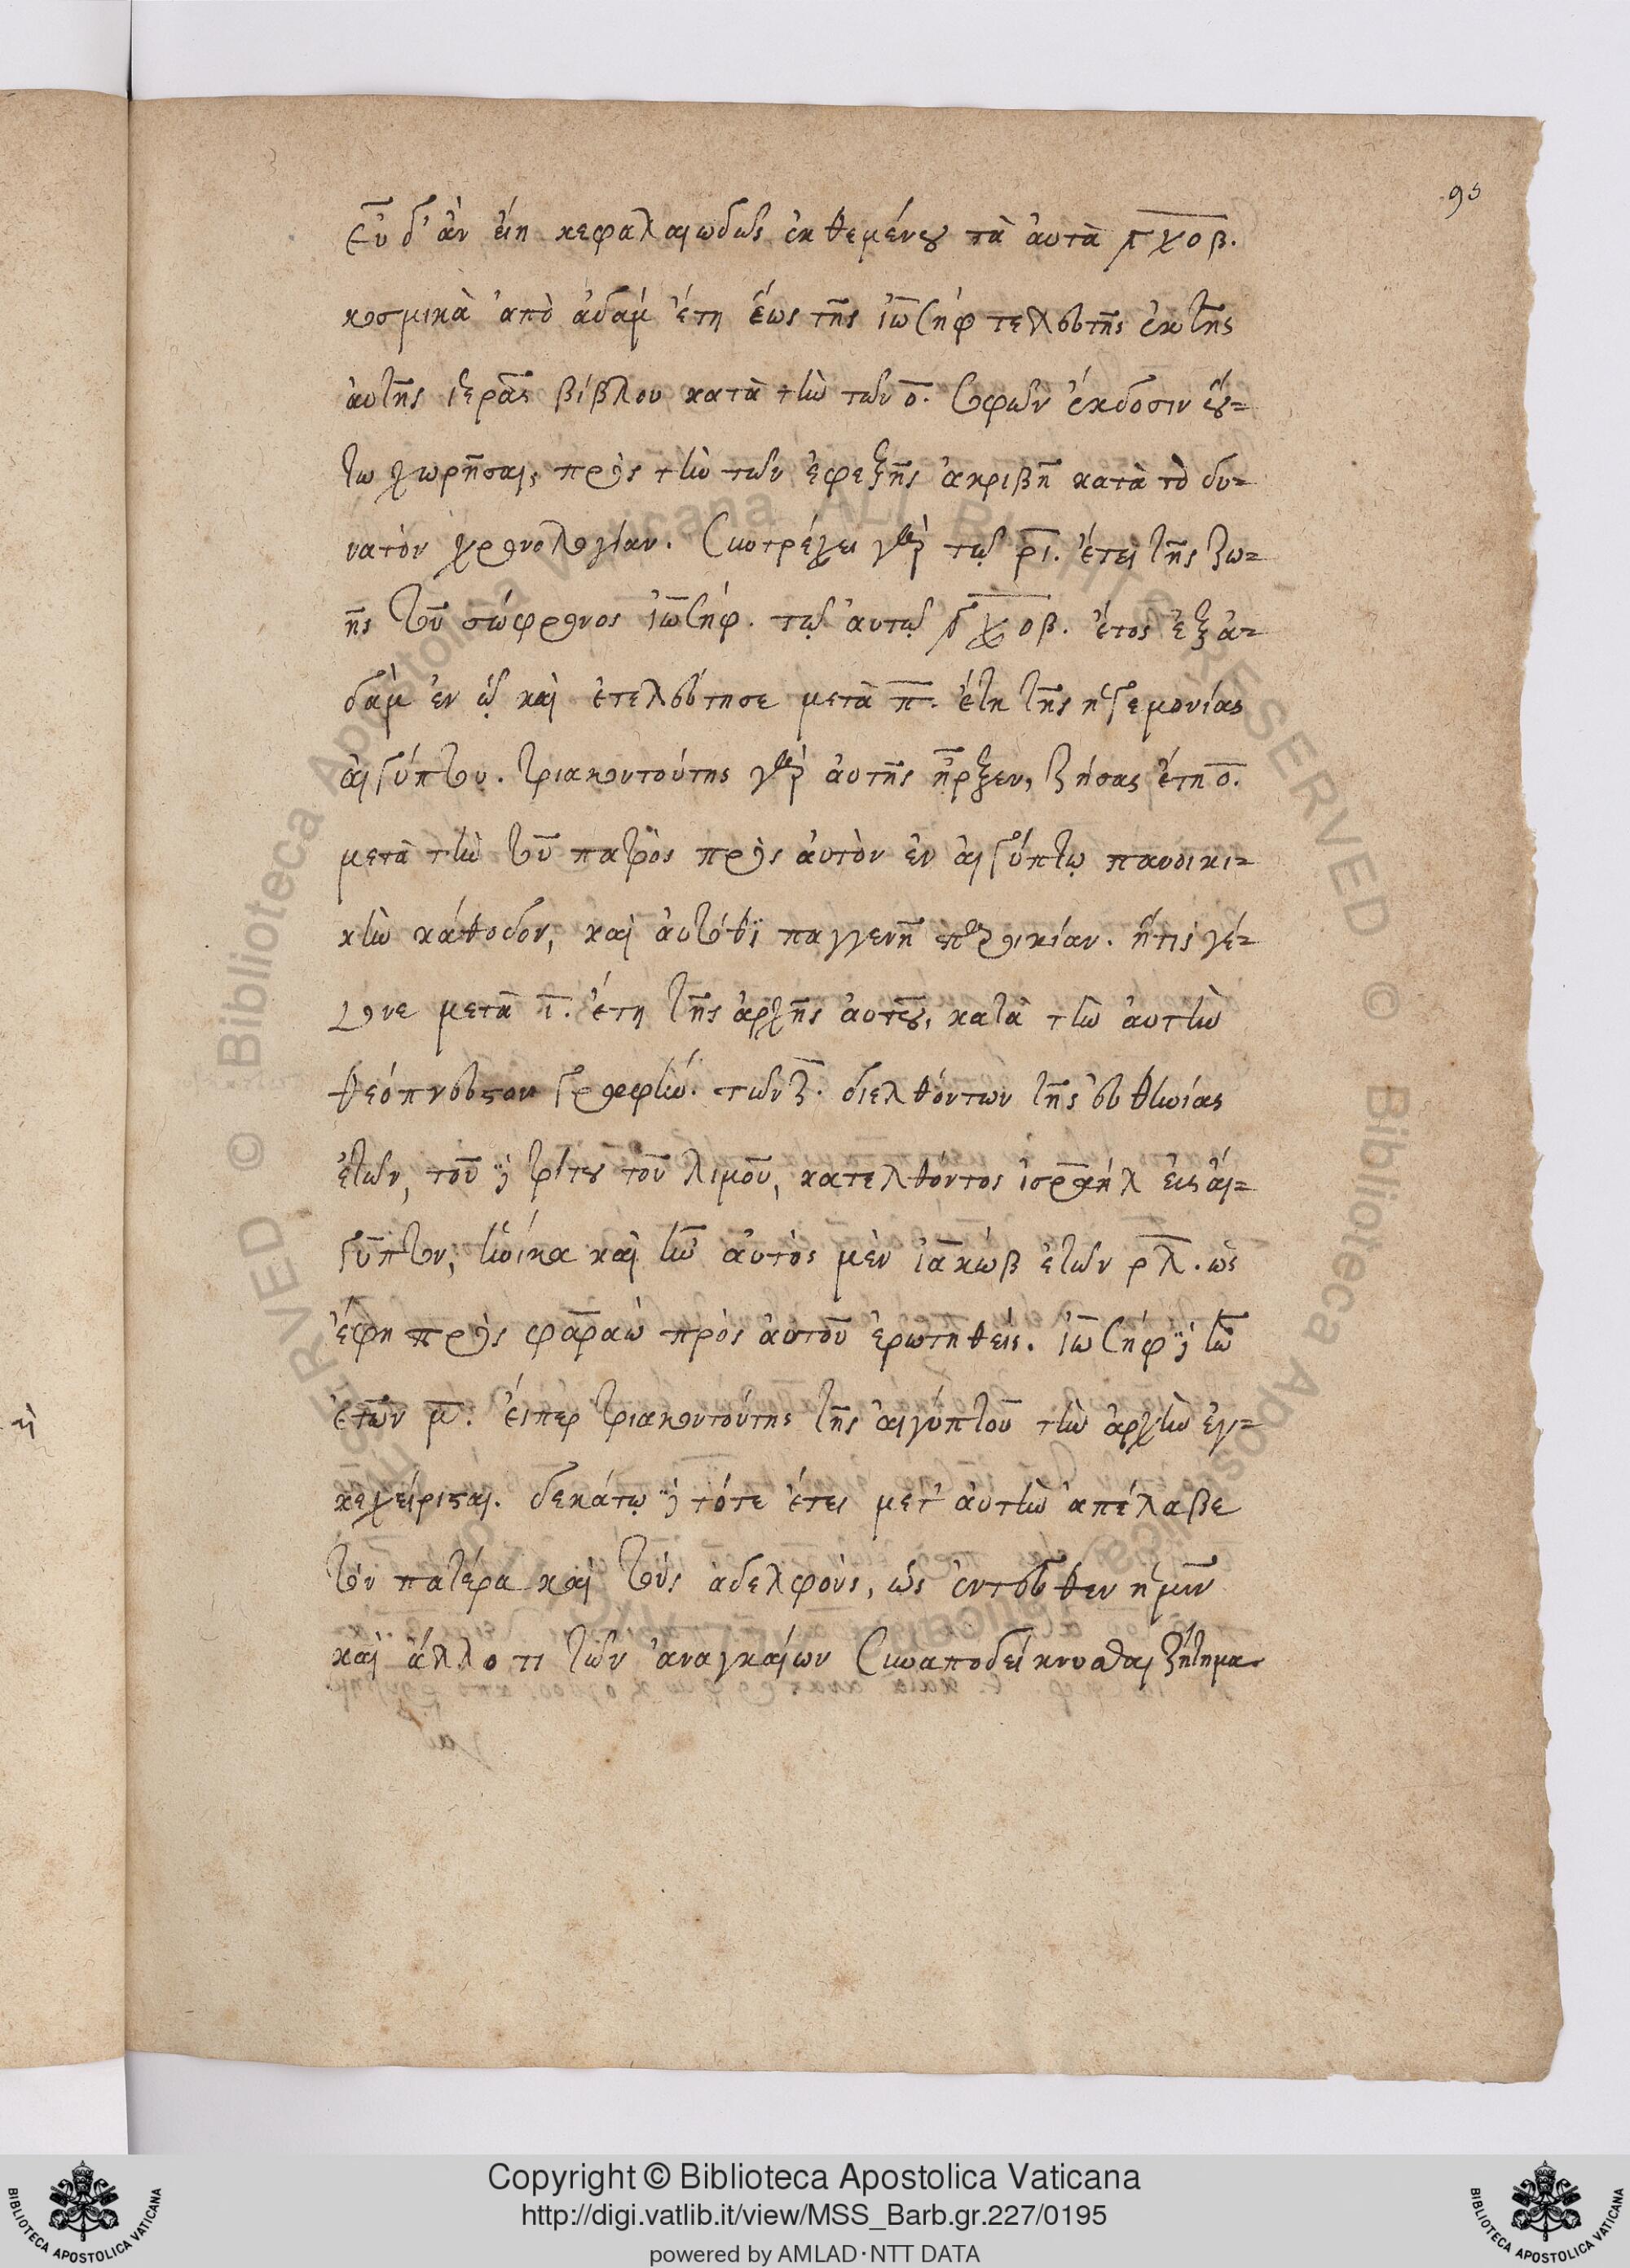 95
Εὖ δ' ἂν εἴη κεφαλαιωδῶς ἐκθεμένου τὰ αὐτὰ ͵γχοβ.
κοσμικὰ ἀπὸ ἀδάμ ἔτη ἕως τῆς ἰωσὴφ τελευτῆς ἐκ τῆς
αὐτῆς ἱερᾶς βίβλου κατὰ τὴν τῶν ο. σοφῶν ἔκδοσιν οὕ=
τω χωρῆσαι, πρὸς τὴν τῶν ἐφεξῆς ἀκριβῆ κατὰ τὸ δυ=
νατὸν χρονολογίαν. Συντρέχει γὰρ τῷ ρι. ἔτει τῆς ζω=
ῆς τοῦ σώφρονος ἰωσήφ. τῷ αὐτῷ ͵γχοβ. ἔτος ἐξ ἀ=
δὰμ ἐν ᾧ καὶ ἐτελεύτησε μετὰ π. ἔτη τῆς ἡγεμονίας
αἰγύπτου. τριακοντούτης γὰρ αὐτῆς ἦρξεν, ζήσας ἔτη ο.
μετὰ τὴν τοῦ πατρὸς πρὸς αὐτὸν ἐν αἰγύπτῳ πανοικι=
κὴν κάθοδον, καὶ αὐτόθι παγγενῆ παροικίαν. ἥτις γέ=
γονε μετὰ ι. ἔτη τῆς ἀρχῆς αὐτοῦ, κατὰ τὴν αὐτὴν
θεόπνευστον γραφὴν. τῶν ζ. διελθόντων τῆς εὐθηνίας
ἐτῶν, τοῦ δὲ τρίτου τοῦ λιμοῦ, κατελθόντος ἰσραὴλ εἰς αἴ=
γυπτον, ἡνίκα καὶ ἦν αὐτὸς μὲν ἰακὼβ ἐτῶν ρλ. ὡς
ἔφη πρὸς φαραὼ πρὸς αὐτοῦ ἐρωτηθείς. ἰωσὴφ δὲ ἦν
ἐτῶν μ. εἴπερ τριακοντούτης τῆς αἰγύπτου τὴν ἀρχὴν ἐγ=
κεχείρισται. δεκάτῳ δὲ τότε ἔτει μετ' αὐτὴν ἀπέλαβε
τὸν πατέρα καὶ τοὺς ἀδελφοὺς, ὡς ἐντεῦθεν ἡμῖν
καὶ ἄλλο τι τῶν ἀναγκαίων συναποδείκνυσθαι ζήτημα.
Copyright © Biblioteca Apostolica Vaticana
http://digi.vatlib.it/view/MSS_Barb.gr.227/0195
powered by AMLAD·NTT DATA